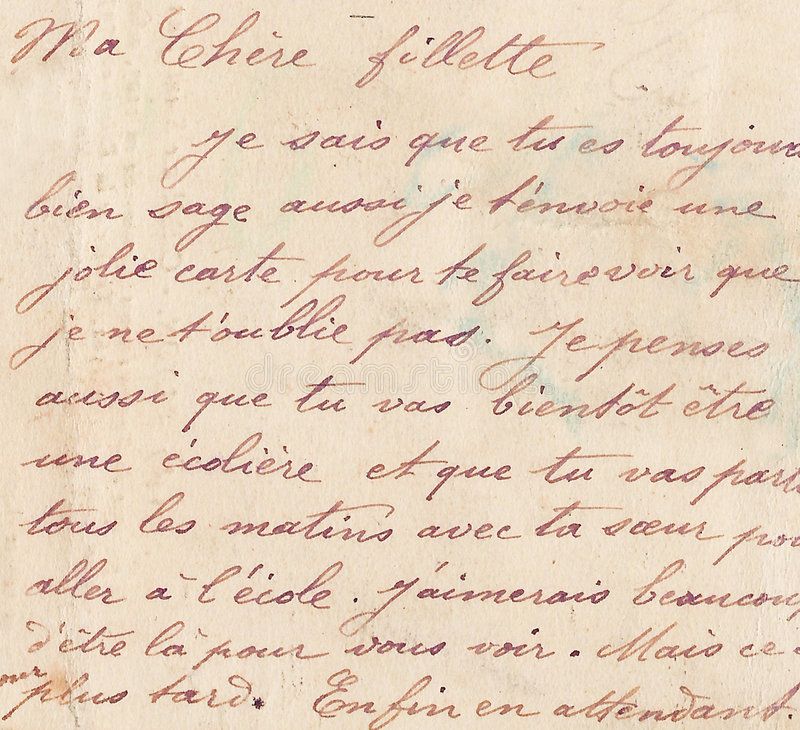 Ma Chère fillette
Je sais que tu es toujours
bien sage aussi je t'envoie une
jolie carte pour te faire voir que
je ne t'oublie pas. Je penses
aussi que tu vas bientôt être
une écolière et que tu vas part
tous les matins avec ta sœur pou
aller à l'école. J'aimerais beaucoup
d'être là pour vous voir. Mais ce
plus tard. Enfin en attendant.
dreamstime